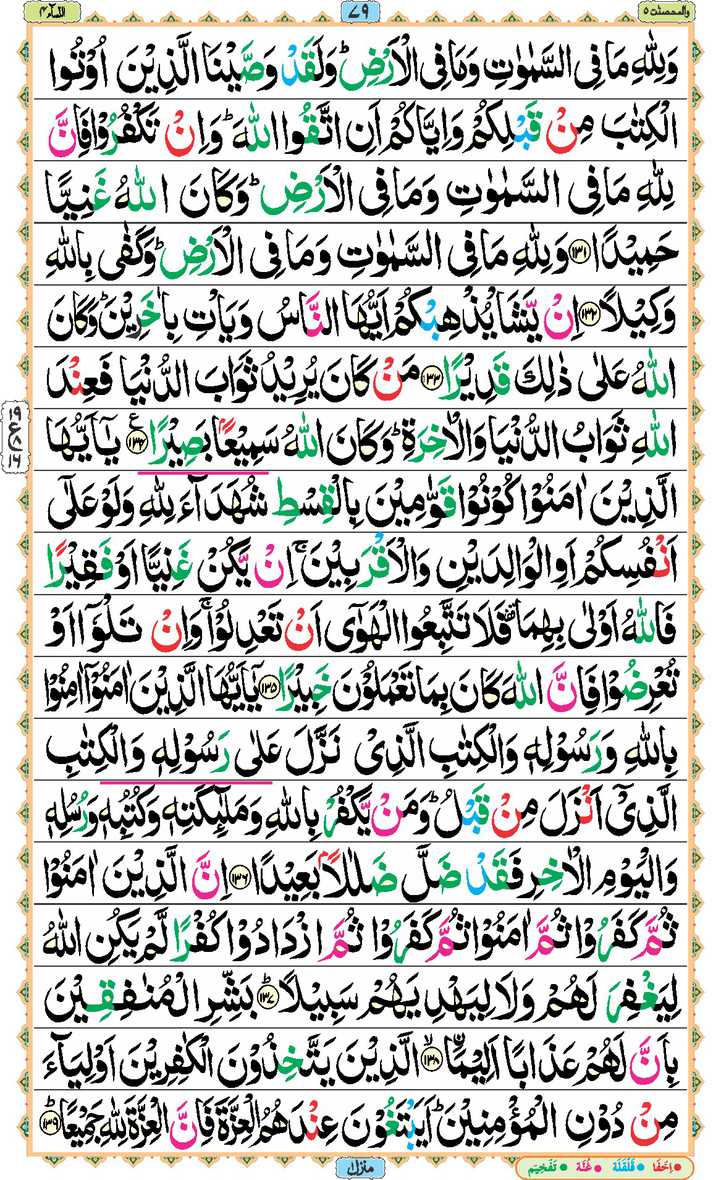 والمحصنت ٥
٧٩
النساء ٤
وَلِلّٰهِ مَا فِى السَّمٰوٰتِ وَمَا فِى الْاَرْضِؕ وَلَقَدْ وَصَّيْنَا الَّذِيْنَ اُوْتُوا
الْكِتٰبَ مِنْ قَبْلِكُمْ وَاِيَّاكُمْ اَنِ اتَّقُوا اللّٰهَؕ وَاِنْ تَكْفُرُوْا فَاِنَّ
لِلّٰهِ مَا فِى السَّمٰوٰتِ وَمَا فِى الْاَرْضِؕ وَكَانَ اللّٰهُ غَنِيًّا
حَمِيْدًا ﴿١٣١﴾ وَلِلّٰهِ مَا فِى السَّمٰوٰتِ وَمَا فِى الْاَرْضِؕ وَكَفٰى بِاللّٰهِ
وَكِيْلًا ﴿١٣٢﴾ اِنْ يَّشَاْ يُذْهِبْكُمْ اَيُّهَا النَّاسُ وَيَاْتِ بِاٰخَرِيْنَؕ وَكَانَ
اللّٰهُ عَلٰى ذٰلِكَ قَدِيْرًا ﴿١٣٣﴾ مَنْ كَانَ يُرِيْدُ ثَوَابَ الدُّنْيَا فَعِنْدَ
اللّٰهِ ثَوَابُ الدُّنْيَا وَالْاٰخِرَةِؕ وَكَانَ اللّٰهُ سَمِيْعًاۢ بَصِيْرًا ﴿١٣٤﴾ع يٰۤاَيُّهَا
الَّذِيْنَ اٰمَنُوْا كُوْنُوْا قَوّٰمِيْنَ بِالْقِسْطِ شُهَدَآءَ لِلّٰهِ وَلَوْ عَلٰٓى
اَنْفُسِكُمْ اَوِ الْوَالِدَيْنِ وَالْاَقْرَبِيْنَۚ اِنْ يَّكُنْ غَنِيًّا اَوْ فَقِيْرًا
فَاللّٰهُ اَوْلٰى بِهِمَا فَلَا تَتَّبِعُوا الْهَوٰٓى اَنْ تَعْدِلُوْاۚ وَاِنْ تَلْوٗۤا اَوْ
تُعْرِضُوْا فَاِنَّ اللّٰهَ كَانَ بِمَا تَعْمَلُوْنَ خَبِيْرًا ﴿١٣٥﴾ يٰۤاَيُّهَا الَّذِيْنَ اٰمَنُوْۤا اٰمِنُوْا
بِاللّٰهِ وَرَسُوْلِهٖ وَالْكِتٰبِ الَّذِىْ نَزَّلَ عَلٰى رَسُوْلِهٖ وَالْكِتٰبِ
الَّذِىْۤ اَنْزَلَ مِنْ قَبْلُؕ وَمَنْ يَّكْفُرْ بِاللّٰهِ وَمَلٰٓئِكَتِهٖ وَكُتُبِهٖ وَرُسُلِهٖ
وَالْيَوْمِ الْاٰخِرِ فَقَدْ ضَلَّ ضَلٰلًاۢ بَعِيْدًا ﴿١٣٦﴾ اِنَّ الَّذِيْنَ اٰمَنُوْا
ثُمَّ كَفَرُوْا ثُمَّ اٰمَنُوْا ثُمَّ كَفَرُوْا ثُمَّ ازْدَادُوْا كُفْرًا لَّمْ يَكُنِ اللّٰهُ
لِيَغْفِرَ لَهُمْ وَلَا لِيَهْدِيَهُمْ سَبِيْلًاؕ ﴿١٣٧﴾ بَشِّرِ الْمُنٰفِقِيْنَ
بِاَنَّ لَهُمْ عَذَابًا اَلِيْمَاۙۨ ﴿١٣٨﴾ الَّذِيْنَ يَتَّخِذُوْنَ الْكٰفِرِيْنَ اَوْلِيَآءَ
مِنْ دُوْنِ الْمُؤْمِنِيْنَؕ اَيَبْتَغُوْنَ عِنْدَهُمُ الْعِزَّةَ فَاِنَّ الْعِزَّةَ لِلّٰهِ جَمِيْعًاؕ ﴿١٣٩﴾
١٩
ع ٨
١٦
منزل ١
اِخْفَا قَلْقَلَة غُنَّة تَفْخِيْم